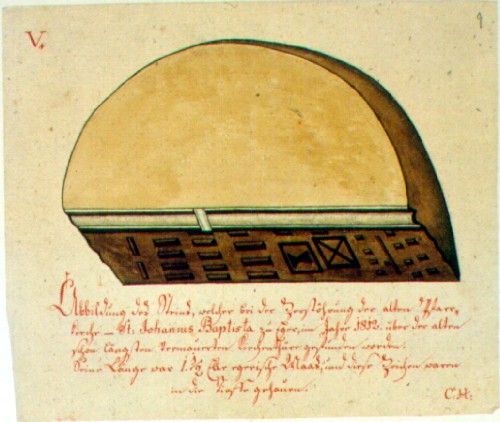 V.
9
Abbildung des Steins, welcher bei der Zerstöhrung der alten Pfarr-
kirche – St. Johannis Baptista zu Eger, im Jahr 1882. über der alten
schon längsten vermauerten Kirchenthür gefunden worden.
Seine Länge war 1½ Elle egerische Maas, und diese Zeichen waren
in die Tiefe gehauen.
C.H: